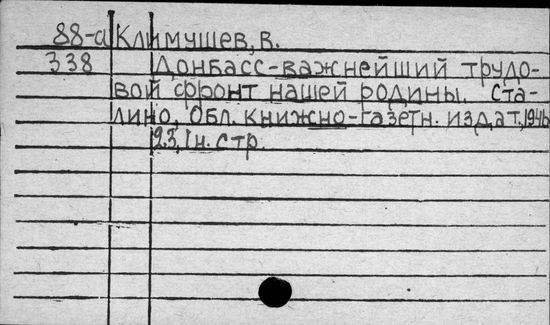 88-а Климушев, В.
338 Донбасс-важнейший трудо-
вой фронт нашей родины. Ста-
лино, Обл. книжно-газетн. издат., 1946
23, 1 н. стр.